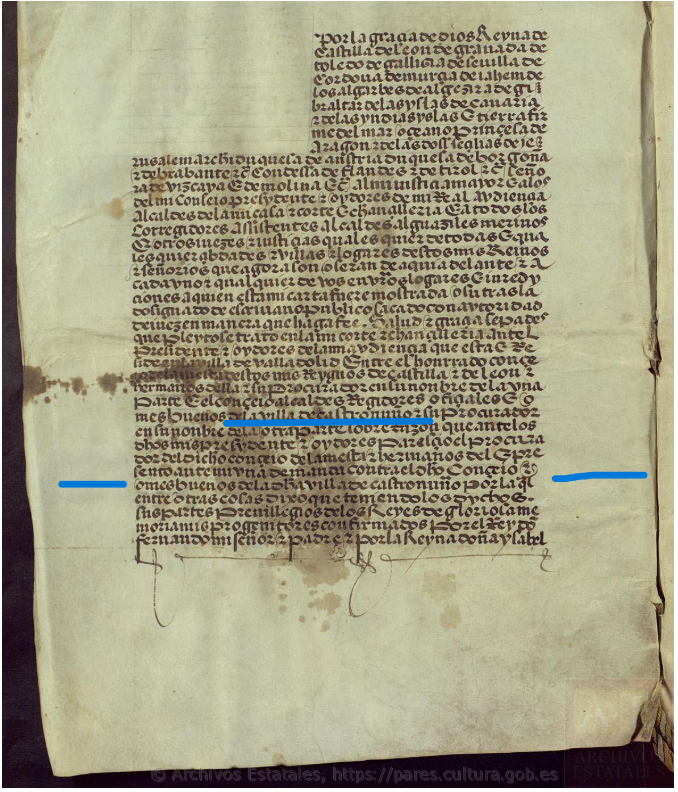 por la graçia de dios Reyna de
Castilla de leon de granada de
toledo de gallizia de seuilla de
Cordoua de murçia de iahem de
los algarbes de algezira de gi
braltar de las yslas de canaria
r de las yndias yslas E tierra fir
me del mar oçeano prinçesa de
Aragon r de las dos seçilias de ie
rusalem archiduquesa de austria duquesa de borgoña
r de brabante rc Condessa de flandes r de tirol rc seño
ra de vizcaya E de molina Ec al mi iustiçia mayor E a los
del mi Consejo presydente r oydores de mi Real Audiençia
Alcaldes de la mi casa r corte E chançilleria E a todos los
Corregidores Assistentes Alcaldes alguaziles merinos
E otros iuezes r iustiçias quales quier de todas E qua
les quier çibdades r villas r logares destos mis Reinos
r señorios que agora son o seran de aqui adelante r A
cada vno r qual quier de vos en vros logares E iuredi
çiones a quien esta mi carta fuere mostrada o su trasla
do signado de escriuano publico sacado con autoridad
de iuez en manera que haga fee Salud r graçia sepades
que pleyto se trato en la mi corte r chançilleria ante el
presidente r oydores de la mi audiençia que esta E Re
side en la villa de valladolid Entre el honrrado conçe
jo de la mesta destos mis Reygnos de castilla r de leon r
hermanos della r su procurador en su nonbre de la vna
parte E el conçeio alcaldes Regidores ofiçiales E o
mes buenos de la villa de castronuño r su procurador
en su nonbre de la otra parte sobre razon que ante los
dhos mis presydente r oydores paresçio el procura
dor del dicho conçeio de la mesta r hermanos del E pre
sento ante mi vna demanda contra el dho Conçeio r
omes buenos de la dha villa de castronuño por la ql
entre otras cosas dixo que teniendo los dychos
sus partes preuillegios de los Reyes de gloriosa me
moria mis progenitores confirmados por el Rey don
fernando mi señor r padre r por la Reyna doña ysabel
© Archivos Estatales, https://pares.cultura.gob.es
ARCHIVOS
ESTATALES